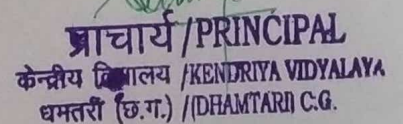 प्राचार्य /PRINCIPAL
केन्द्रीय विद्यालय /KENDRIYA VIDYALAYA
धमतरी (छ.ग.) /(DHAMTARI) C.G.